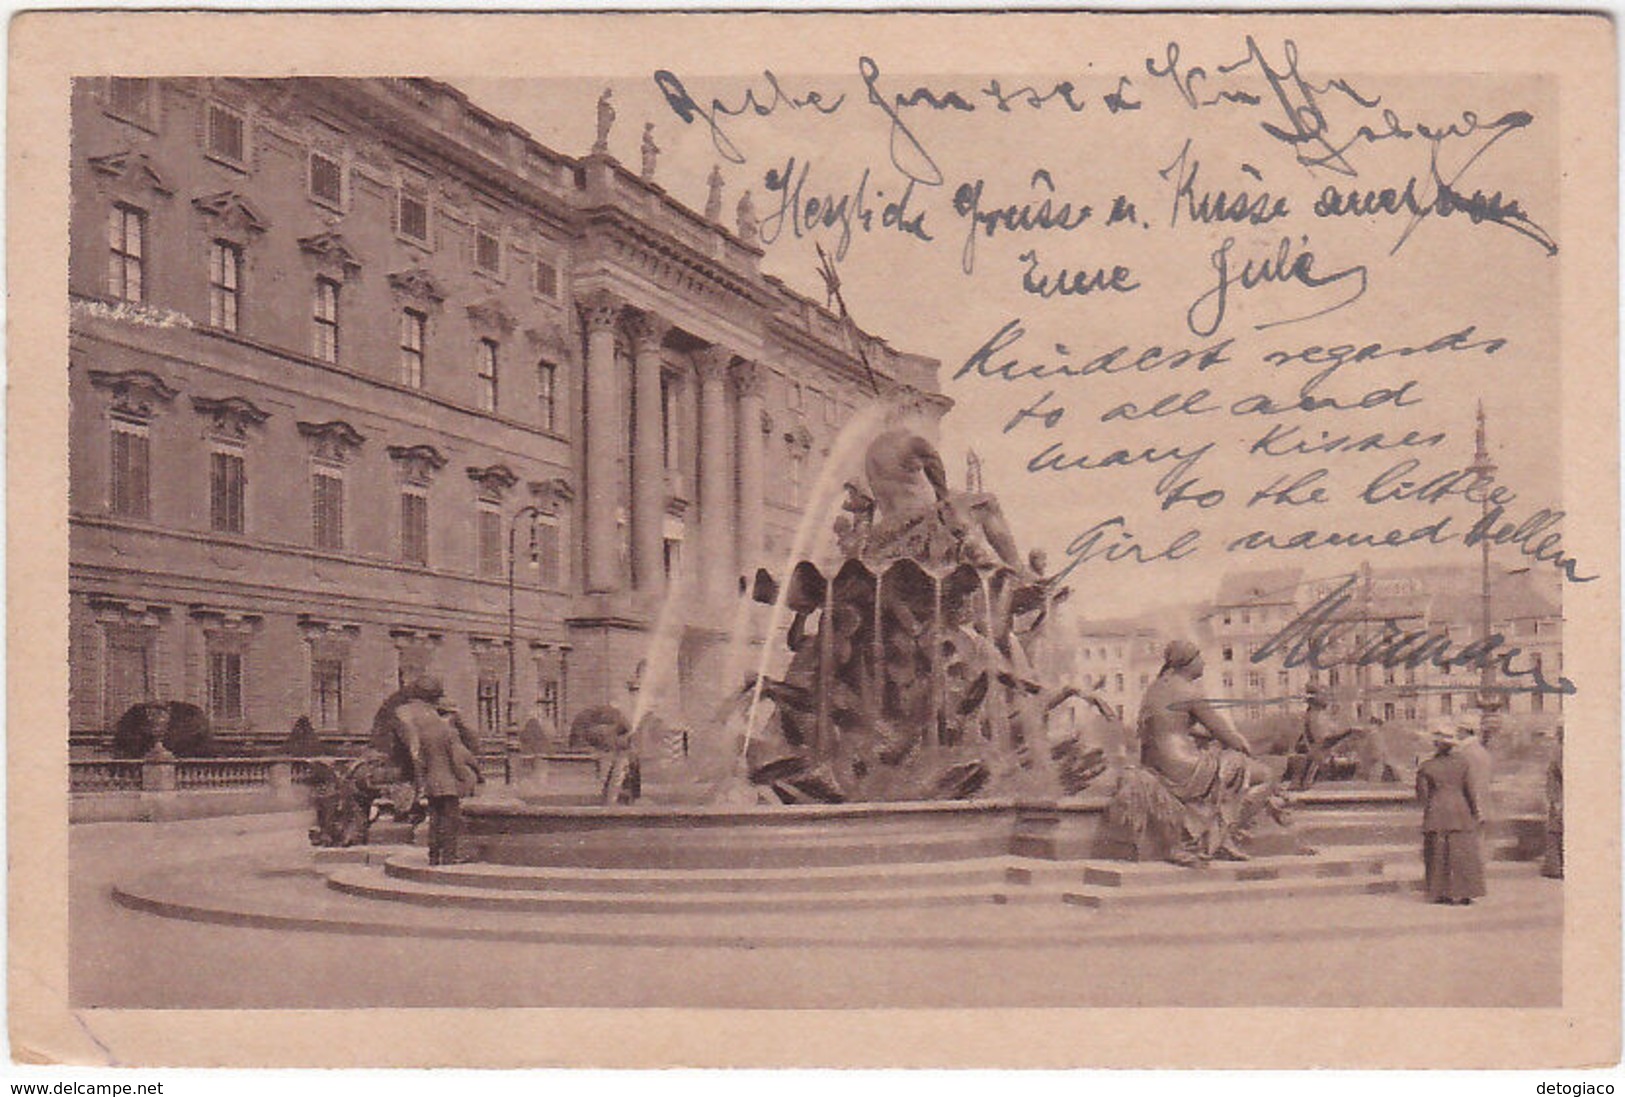 Beste Grüsse & Küsse
Herzliche Grüsse u. Küsse auch von
Eure Jule
Kindest regards
to all and
many Kisses
to the little
Girl named Hellen
www.delcampe.net
detogiaco